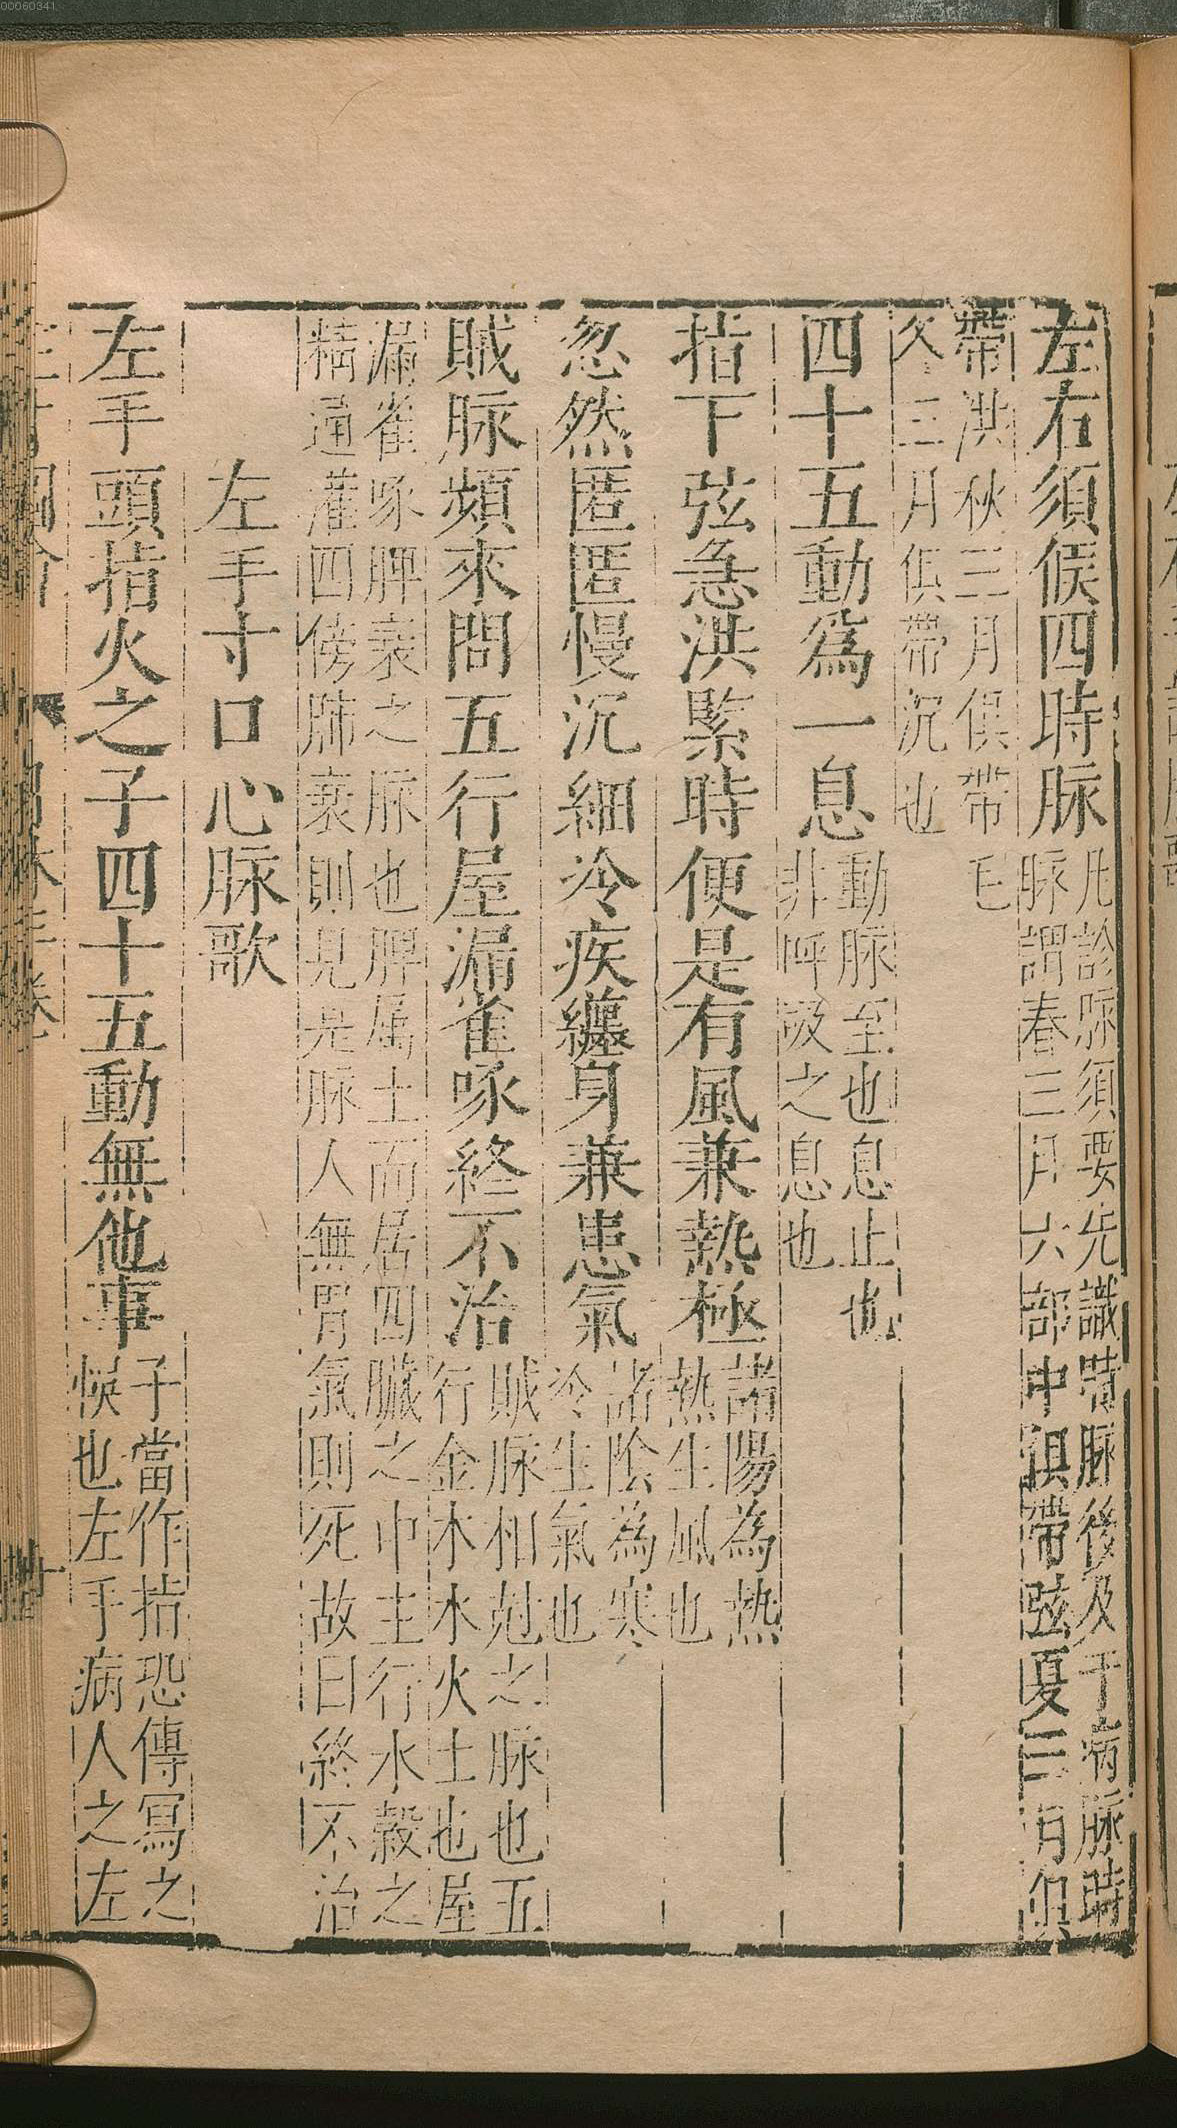 左右須候四時脉凡診脉須要先識時脉後及于病脉時
脉謂春三月六部中俱帶弦夏三月俱
帶洪秋三月俱帶毛
冬三月俱帶沉也
四十五動爲一息動脉至也息止也
非呼吸之息也
指下弦急洪緊時便是有風兼熱極諸陽為熱
熱生風也
忽然匿匿慢沉細冷疾纏身兼患氣諸陰為寒
冷生氣也
賊脉頻來問五行屋漏雀啄終不治賊脉相尅之脉也五
行金木水火土也屋
漏雀啄脾衰之脉也脾属土而居四臟之中主行水穀之
精逼灌四傍肺衰則見是脉人無胃氣則死故曰終不治
左手寸口心脉歌
左手頭指火之子四十五動無他事子當作指恐傳冩之
悮也左手病人之左
00060341